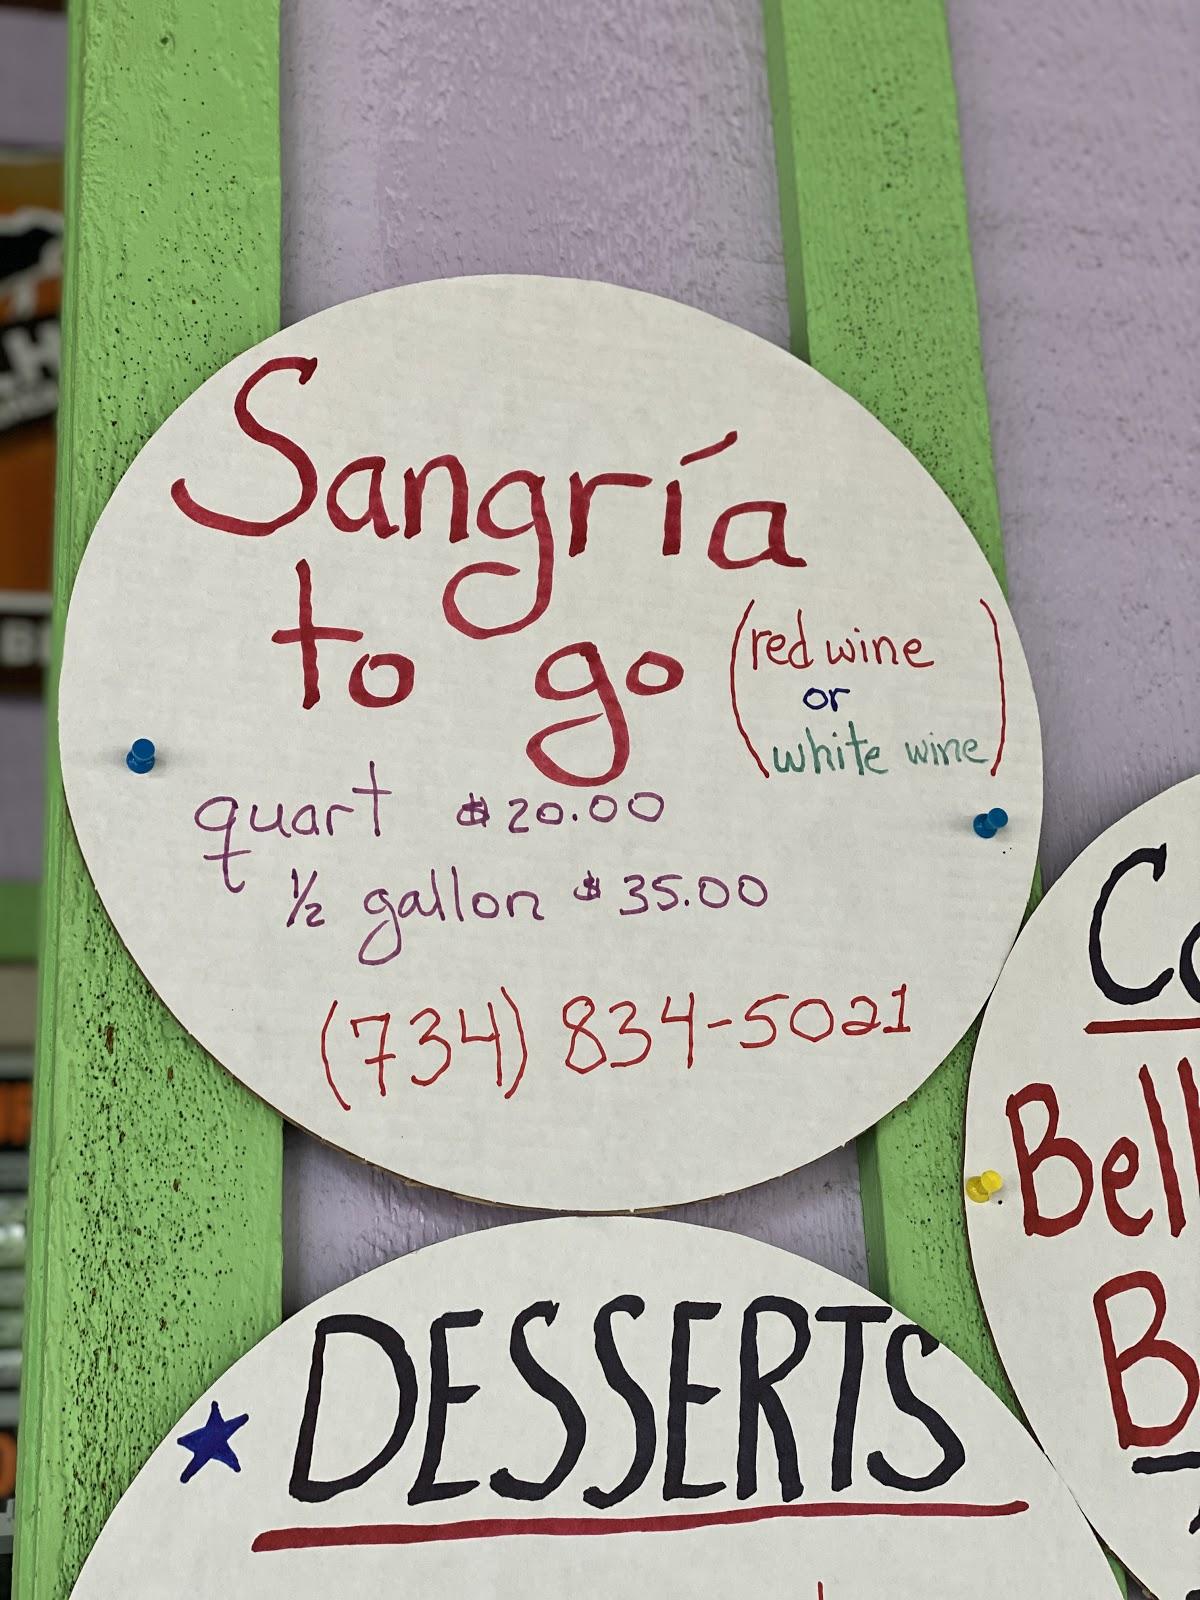 Sangría
to go (red wine
or
white wine)
quart $20.00
½ gallon $35.00
(734) 834-5021
DESSERTS